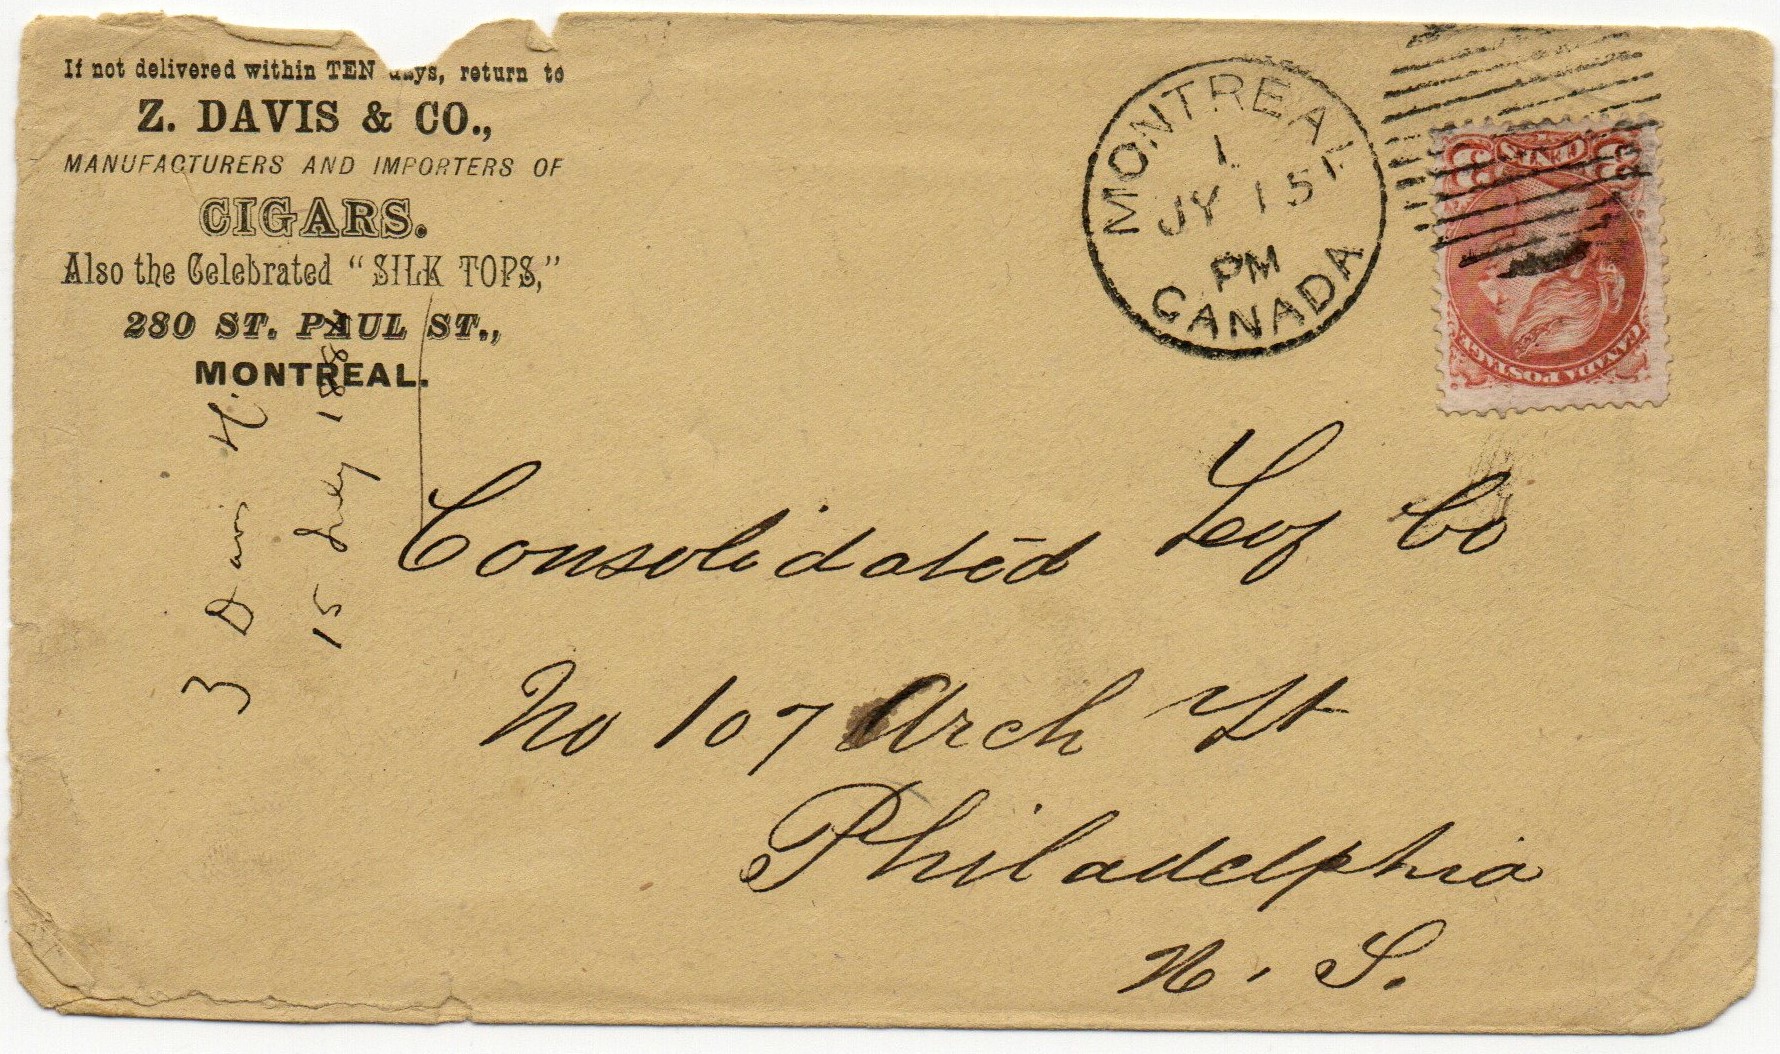 If not delivered within TEN days, return to
Z. DAVIS & CO.,
MANUFACTURERS AND IMPORTERS OF
CIGARS.
Also the Celebrated "SILK TOPS,"
280 ST. PAUL ST.,
MONTREAL.
MONTREAL
1
JY 15
PM
CANADA
3 CENTS 3
CANADA POSTAGE
15 July 188
Consolidated Leaf Co
No 107 Arch St
Philadelphia
U. S.